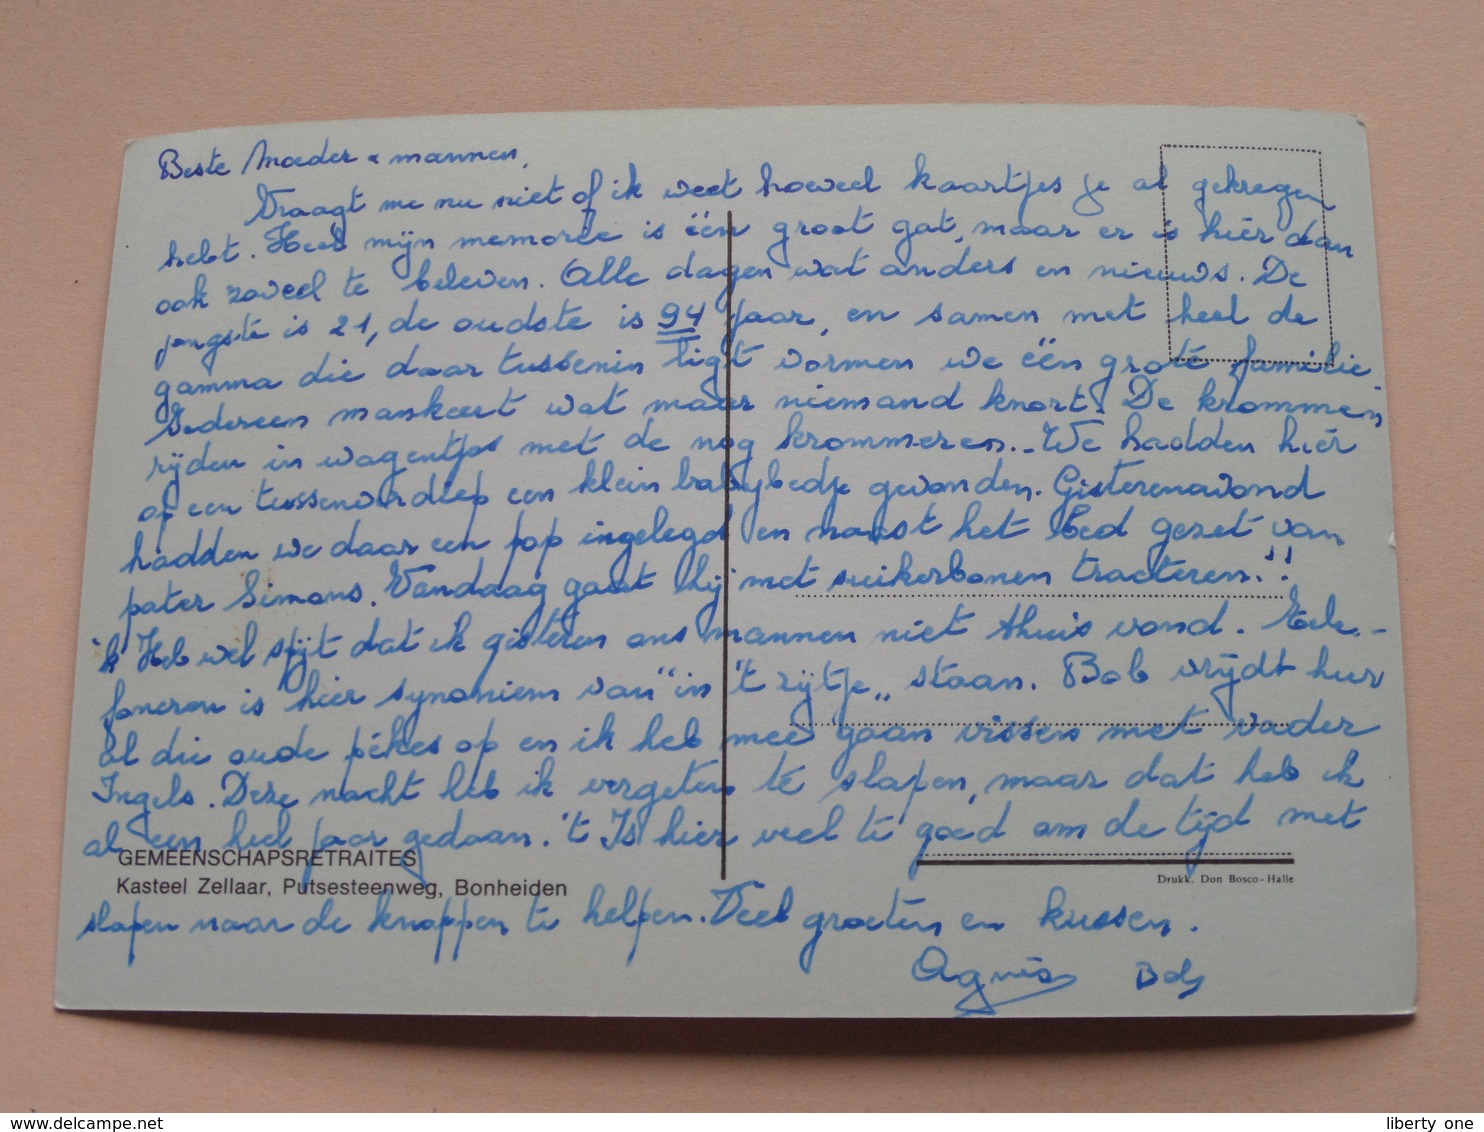 Beste Moeder & mannen,
Vraagt me nu niet of ik weet hoeveel kaartjes je al gekregen
hebt. Heel mijn memorie is één groot gat, maar er is hier dan
ook zoveel te beleven. Alle dagen wat anders en nieuws. De
jongste is 21, de oudste is 94 jaar, en samen met heel de
gamma die daar tussenin ligt vormen we één grote familie.
Iedereen mankeert wat maar niemand knort. De krommen
rijden in wagentjes met de nog krommeren.. We hadden hier
op een tussenverdiep een klein babybedje gevonden. Gisterenavond
hadden we daar een pop ingelegd en naast het bed gezet van
pater Simons. Vandaag gaat hij met suikerbonen tracteren.!!
ik Heb wel spijt dat ik gisteren ons mannen niet thuis vond. Tele-
foneren is hier synoniem van "in 't rijtje" staan. Bob vrijdt hier
al die oude pékes op en ik heb mee gaan vissen met vader
Ingels. Deze nacht heb ik vergeten te slapen, maar dat heb ik
al een heel jaar gedaan. 't Is hier veel te goed om de tijd met
GEMEENSCHAPSRETRAITES
Kasteel Zellaar, Putsesteenweg, Bonheiden
Drukk. Don Bosco-Halle
slapen naar de knoppen te helpen. Veel groeten en kussen.
Agnès Bob
liberty one